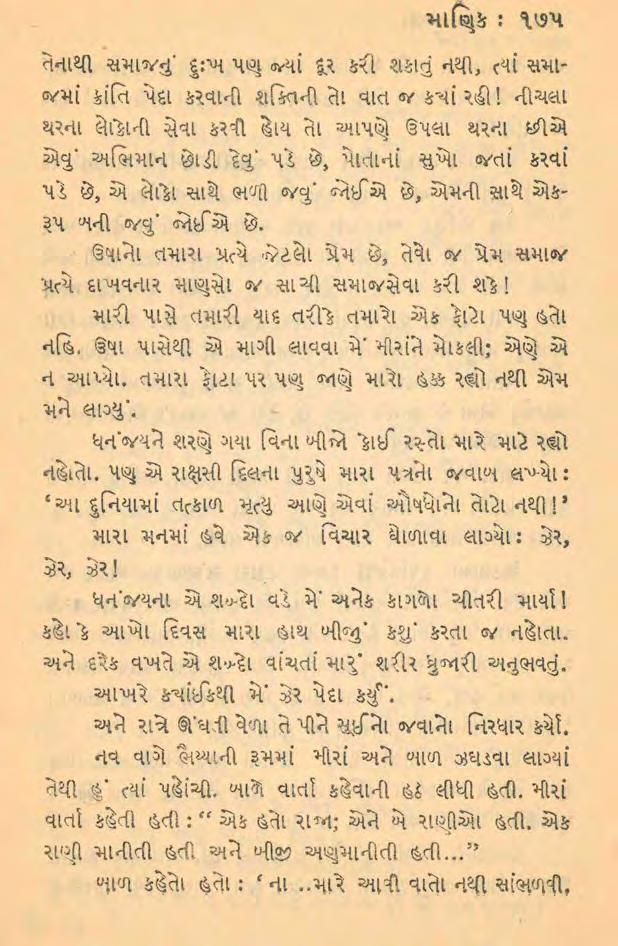 માણિક : ૧૭૫
તેનાથી સમાજનું દુઃખ પણ જ્યાં દૂર કરી શકાતું નથી, ત્યાં સમા-
જમાં ક્રાંતિ પેદા કરવાની શક્તિની તો વાત જ ક્યાં રહી! નીચલા
થરના લોકોની સેવા કરવી હોય તો આપણે ઉપલા થરના છીએ
એવું અભિમાન છોડી દેવું પડે છે, પોતાનાં સુખો જતાં કરવાં
પડે છે, એ લોકો સાથે ભળી જવું જોઈએ છે, એમની સાથે એક-
રૂપ બની જવું જોઈએ છે.
ઉષાનો તમારા પ્રત્યે જેટલો પ્રેમ છે, તેવો જ પ્રેમ સમાજ
પ્રત્યે દાખવનાર માણસો જ સાચી સમાજસેવા કરી શકે!
મારી પાસે તમારી યાદ તરીકે તમારો એક ફોટો પણ હતો
નહિ. ઉષા પાસેથી એ માગી લાવવા મેં મીરાંને મોકલી; એણે એ
ન આપ્યો. તમારા ફોટા પર પણ જાણે મારો હક્ક રહ્યો નથી એમ
મને લાગ્યું.
ધનંજયને શરણે ગયા વિના બીજો કોઈ રસ્તો મારે માટે રહ્યો
નહોતો. પણ એ રાક્ષસી દિલના પુરુષે મારા પત્રનો જવાબ લખ્યો :
‘આ દુનિયામાં તત્કાળ મૃત્યુ આણે એવાં ઔષધોનો તોટો નથી!’
મારા મનમાં હવે એક જ વિચાર ઘોળાવા લાગ્યો : ઝેર,
ઝેર, ઝેર!
ધનંજયના એ શબ્દો વડે મેં અનેક કાગળો ચીતરી માર્યા!
કહો કે આખો દિવસ મારા હાથ બીજું કશું કરતા જ નહોતા.
અને દરેક વખતે એ શબ્દો વાંચતાં મારું શરીર ધ્રુજારી અનુભવતું.
આખરે ક્યાંઈકથી મેં ઝેર પેદા કર્યું.
અને રાત્રે ઊંઘતી વેળા તે પીને સૂઈનો જવાનો નિરધાર કર્યો.
નવ વાગે ભૈય્યાની રૂમમાં મીરાં અને બાળ ઝઘડવા લાગ્યાં
તેથી હું ત્યાં પહોંચી. બાળે વાર્તા કહેવાની હઠ લીધી હતી. મીરાં
વાર્તા કહેતી હતી : “ એક હતો રાજા; એને બે રાણીઓ હતી. એક
રાણી માનીતી હતી અને બીજી અણમાનીતી હતી...”
બાળ કહેતો હતો : ‘ના ..મારે આવી વાતો નથી સાંભળવી,